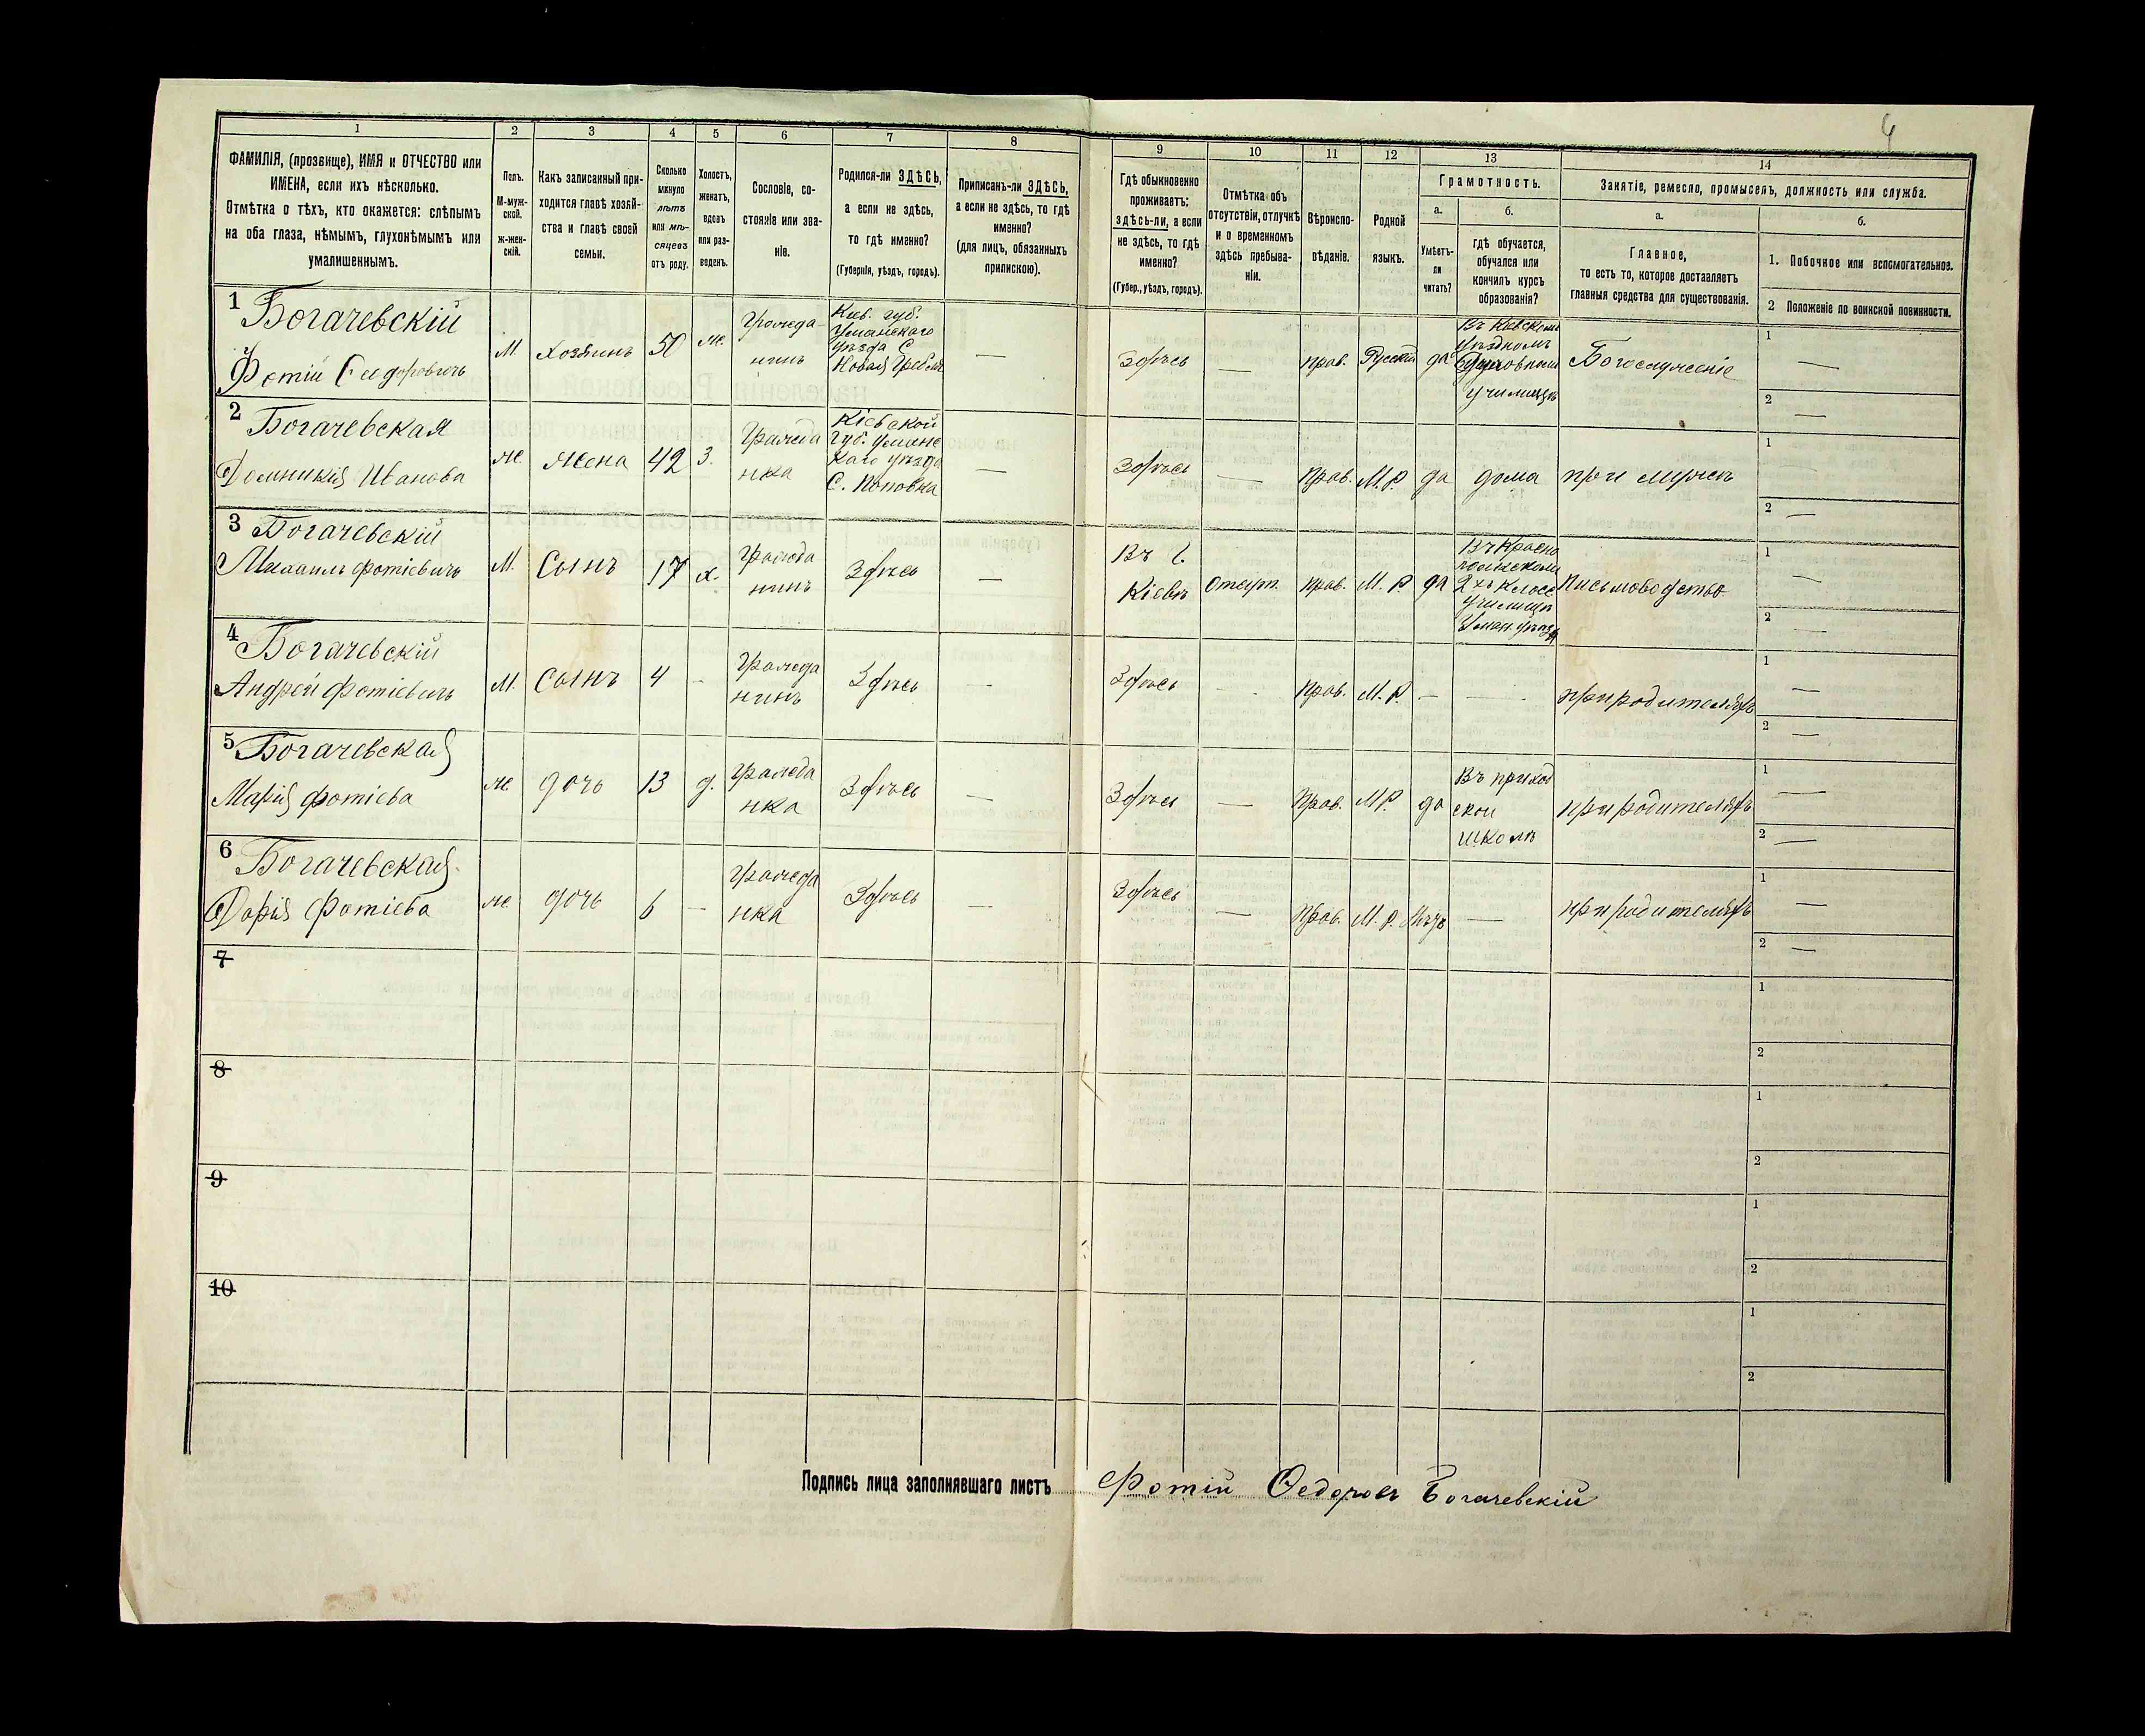 4
1 2 3 4 5 6 7 8 9 10 11 12 13 14
ФАМИЛІЯ, (прозвище), ИМЯ и ОТЧЕСТВО или
ИМЕНА, если ихъ нѣсколько.
Отмѣтка о тѣхъ, кто окажется: слѣпымъ
на оба глаза, нѣмымъ, глухонѣмымъ или
умалишеннымъ.
Полъ.
М-муж-
ской.
ж-жен-
скій.
Какъ записанный при-
ходится главѣ хозяй-
ства и главѣ своей
семьи.
Сколько
минуло
лѣтъ
или мѣ-
сяцевъ
отъ роду.
Холостъ,
женатъ,
вдовъ
или раз-
веденъ.
Сословіе, со-
стояніе или зва-
ніе.
Родился-ли ЗДѢСЬ,
а если не здѣсь,
то гдѣ именно?
(Губернія, уѣздъ, городъ).
Приписанъ-ли ЗДѢСЬ,
а если не здѣсь, то гдѣ
именно?
(для лицъ, обязанныхъ
припискою).
Гдѣ обыкновенно
проживаетъ:
здѣсь-ли, а если
не здѣсь, то гдѣ
именно?
(Губер., уѣздъ, городъ).
Отмѣтка объ
отсутствіи, отлучкѣ
и о временномъ
здѣсь пребыва-
ніи.
Вѣроиспо-
вѣданіе.
Родной
языкъ.
Грамотность.
а.
Умѣетъ-
ли
читать?
б.
гдѣ обучается,
обучался или
кончилъ курсъ
образованія?
Занятіе, ремесло, промыселъ, должность или служба.
а.
Главное,
то есть то, которое доставляетъ
главныя средства для существованія.
б.
1. Побочное или вспомогательное.
2 Положеніе по воинской повинности.
1 Богачевскій
Фотій Ѳедоровичъ
М.
Хозяинъ
50
ж.
Гражда-
нинъ
Кіев. губ.
Уманскаго
уѣзда С.
Новая Гребля
—
Здѣсь
—
прав.
Русскій
да
Въ Кіевскомъ
Уѣздномъ
Духовномъ
училищѣ
Богослуженіе
1 —
2 —
2 Богачевская
Домникія Иванова
ж.
жена
42
З.
Гражда
нка
Кіевской
Губ. Уманс
каго уѣзда
С. Поповка
—
Здѣсь
—
Прав.
М.Р.
да
дома
при мужѣ
1
2 —
3 Богачевскій
Михаилъ Фотіевичъ
М.
Сынъ
17
х.
Гражда
нинъ
Здѣсь
—
Въ г.
Кіевѣ
прав.
М. Р.
да
2хъ класс
училищѣ
Уман. уѣзда
Письмоводство
1 —
2 —
4 Богачевскій
Андрей Фотіевичъ
М.
Сынъ
4
—
Гражда
нинъ
Здѣсь
—
Здѣсь
—
прав.
М. Р.
—
—
при родителяхъ
1 —
2 —
5 Богачевская
Марія Фотіева
ж
дочь
13
д.
Гражда
нка
Здѣсь
—
Здѣсь
—
Прав.
М Р.
да
Въ приход
ской
школѣ
при родителяхъ
1 —
2 —
6 Богачевская
Дарія Фотіева
ж
дочь
6
—
Гражда
нка
Здѣсь
—
Здѣсь
—
Прав.
М. Р.
—
при родителяхъ
1 —
2 —
7
1
2
8
1
2
9
1
2
10
1
2
Подпись лица заполнявшаго листъ Фотій Ѳедоровъ Богачевскій